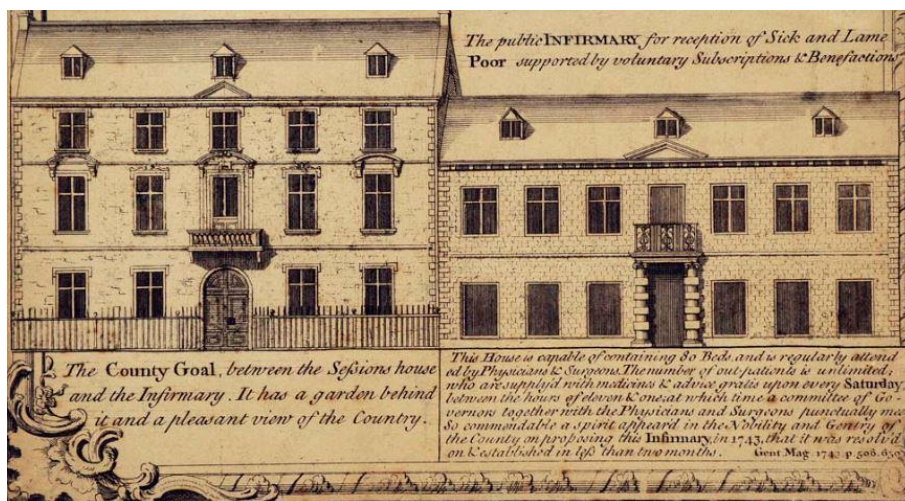 The public INFIRMARY for reception of Sick and Lame
Poor supported by voluntary Subscriptions & Benefactions
The County Goal, between the Seſsions house
and the Infirmary. It has a garden behind
it and a pleasant view of the Country.
This House is capable of containing 80 Beds, and is regularly attend
ed by Physicians & Surgeons. The number of out-patients is unlimited;
who are supply'd with medicines & advice gratis upon every Saturday
between the hours of eleven & one: at which time a committee of Go-
vernors together with the Physicians and Surgeons punctually mee
So commendable a spirit appear'd in the Nobility and Gentry of
the County on proposing this Infirmary, in 1743, that it was resolv'd
on & established in leſs than two months. Gent. Mag.